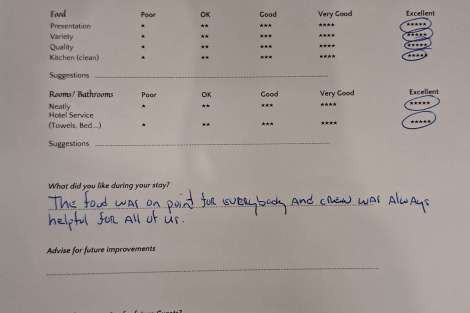 Food Poor OK Good Very Good Excellent
Presentation * ** *** **** *****
Variety * ** *** **** *****
Quality * ** *** **** *****
Kitchen (clean) * ** *** **** *****
Suggestions
Rooms/ Bathrooms Poor OK Good Very Good Excellent
Neatly * ** *** **** *****
Hotel Service
(Towels, Bed...) * ** *** **** *****
Suggestions
What did you like during your stay?
The food was on point for everybody and crew was always
helpful for all of us.
Advise for future improvements